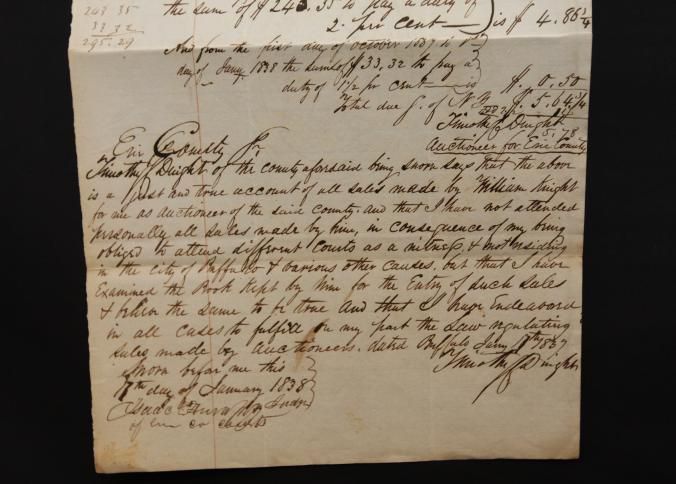 243 35
33 32
295.29
the sum of $ 243.35 to pay a duty of
2. pr cent is $ 4.86 3/4
And from the first day of october 1837 to 1st
day of Jany 1838 the sum of $ 33,32 to pay a
duty of 1 1/2 pr cent is $. 0.50
Total due G. of N Y $. 5.64
Timothy Dwight
5.78
Auctioneer for Erie County
Erie County Ss
Timothy Dwight of the county aforsaid being sworn says that the above
is a just and true account of all sales made by William Knight
for me as auctioneer of the said county. and that I have not attended
personally all sales made by him, in consequence of my being
obliged to attend different Courts as a witness & not residing
in the city of Buffalo & various other causes. but that I have
Examined the Book Kept by him for the Entry of such Sales
& believe the same to be true And that I have Endeavord
in all cases to fulfill on my part the Law regulating
sales made by auctioneers. dated Buffalo Jany 17th 1837
Sworn before me this
17th day of January 1838
Timothy Dwight
Isaac Judge
of Erie co courts